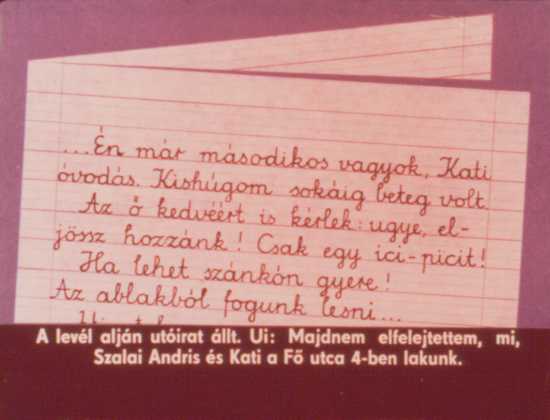 ...Én már másodikos vagyok, Kati
óvodás. Kishúgom sokáig beteg volt.
Az ő kedvéért is kérlek: ugye, el-
jössz hozzánk! Csak egy ici-picit!
Ha lehet szánkón gyere!
Az ablakból fogunk lesni...
A levél alján utóirat állt. Ui: Majdnem elfelejtettem, mi,
Szalai Andris és Kati a Fő utca 4-ben lakunk.